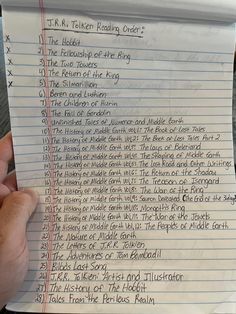 J.R.R. Tolkien Reading Order:
x 1) The Hobbit
x 2) The Fellowship of the Ring
x 3) The Two Towers
x 4) The Return of the King
x 5) The Silmarillion
6) Beren and Luthien
7) The Children of Hurin
8) The Fall of Gondolin
9) Unfinished Tales of Numenor and Middle Earth
10) The History of Middle Earth Vol. 1: The Book of Lost Tales
11) The History of Middle Earth Vol. 2: The Book of Lost Tales Part 2
12) The History of Middle Earth Vol. 3: The Lays of Beleriand
13) The History of Middle Earth Vol. 4: The Shaping of Middle Earth
14) The History of Middle Earth Vol. 5: The Lost Road and Other Writings
15) The History of Middle Earth Vol. 6: The Return of the Shadow
16) The History of Middle Earth Vol. 7: The Treason of Isengard
17) The History of Middle Earth Vol. 8: The War of the Ring
18) The History of Middle Earth Vol. 9: Sauron Defeated (The End of the 3rd Age)
19) The History of Middle Earth Vol. 10: Morgoth's Ring
20) The History of Middle Earth Vol. 11: The War of the Jewels
21) The History of Middle Earth Vol. 12: The Peoples of Middle Earth
22) The Nature of Middle Earth
23) The Letters of J.R.R. Tolkien
24) The Adventures of Tom Bombadil
25) Bilbo's Last Song
26) J.R.R. Tolkien: Artist and Illustrator
27) The History of The Hobbit
28) Tales from the Perilous Realm